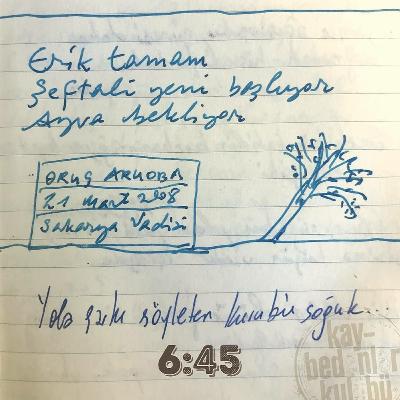 Erik tamam
Şeftali yeni başlıyor
Ayva bekliyor
ORUÇ ARUOBA
21 Mart 2008
Sakarya Vadisi
Yola şarkı söyleten kuru bir soğuk...
6:45
kay-
bedenler
kulübü